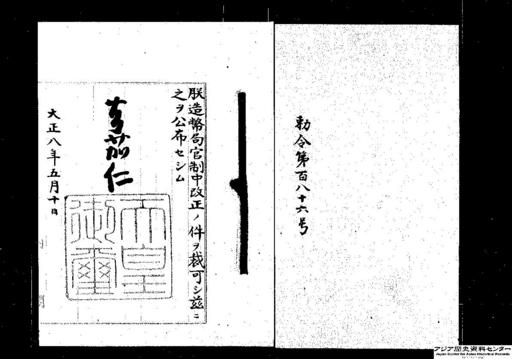 勅令第百八十六号
朕造幣局官制中改正ノ件ヲ裁可シ茲ニ
之ヲ公布セシム
嘉仁
天皇御璽
大正八年五月十日
アジア歴史資料センター
Japan Center for Asian Historical Records